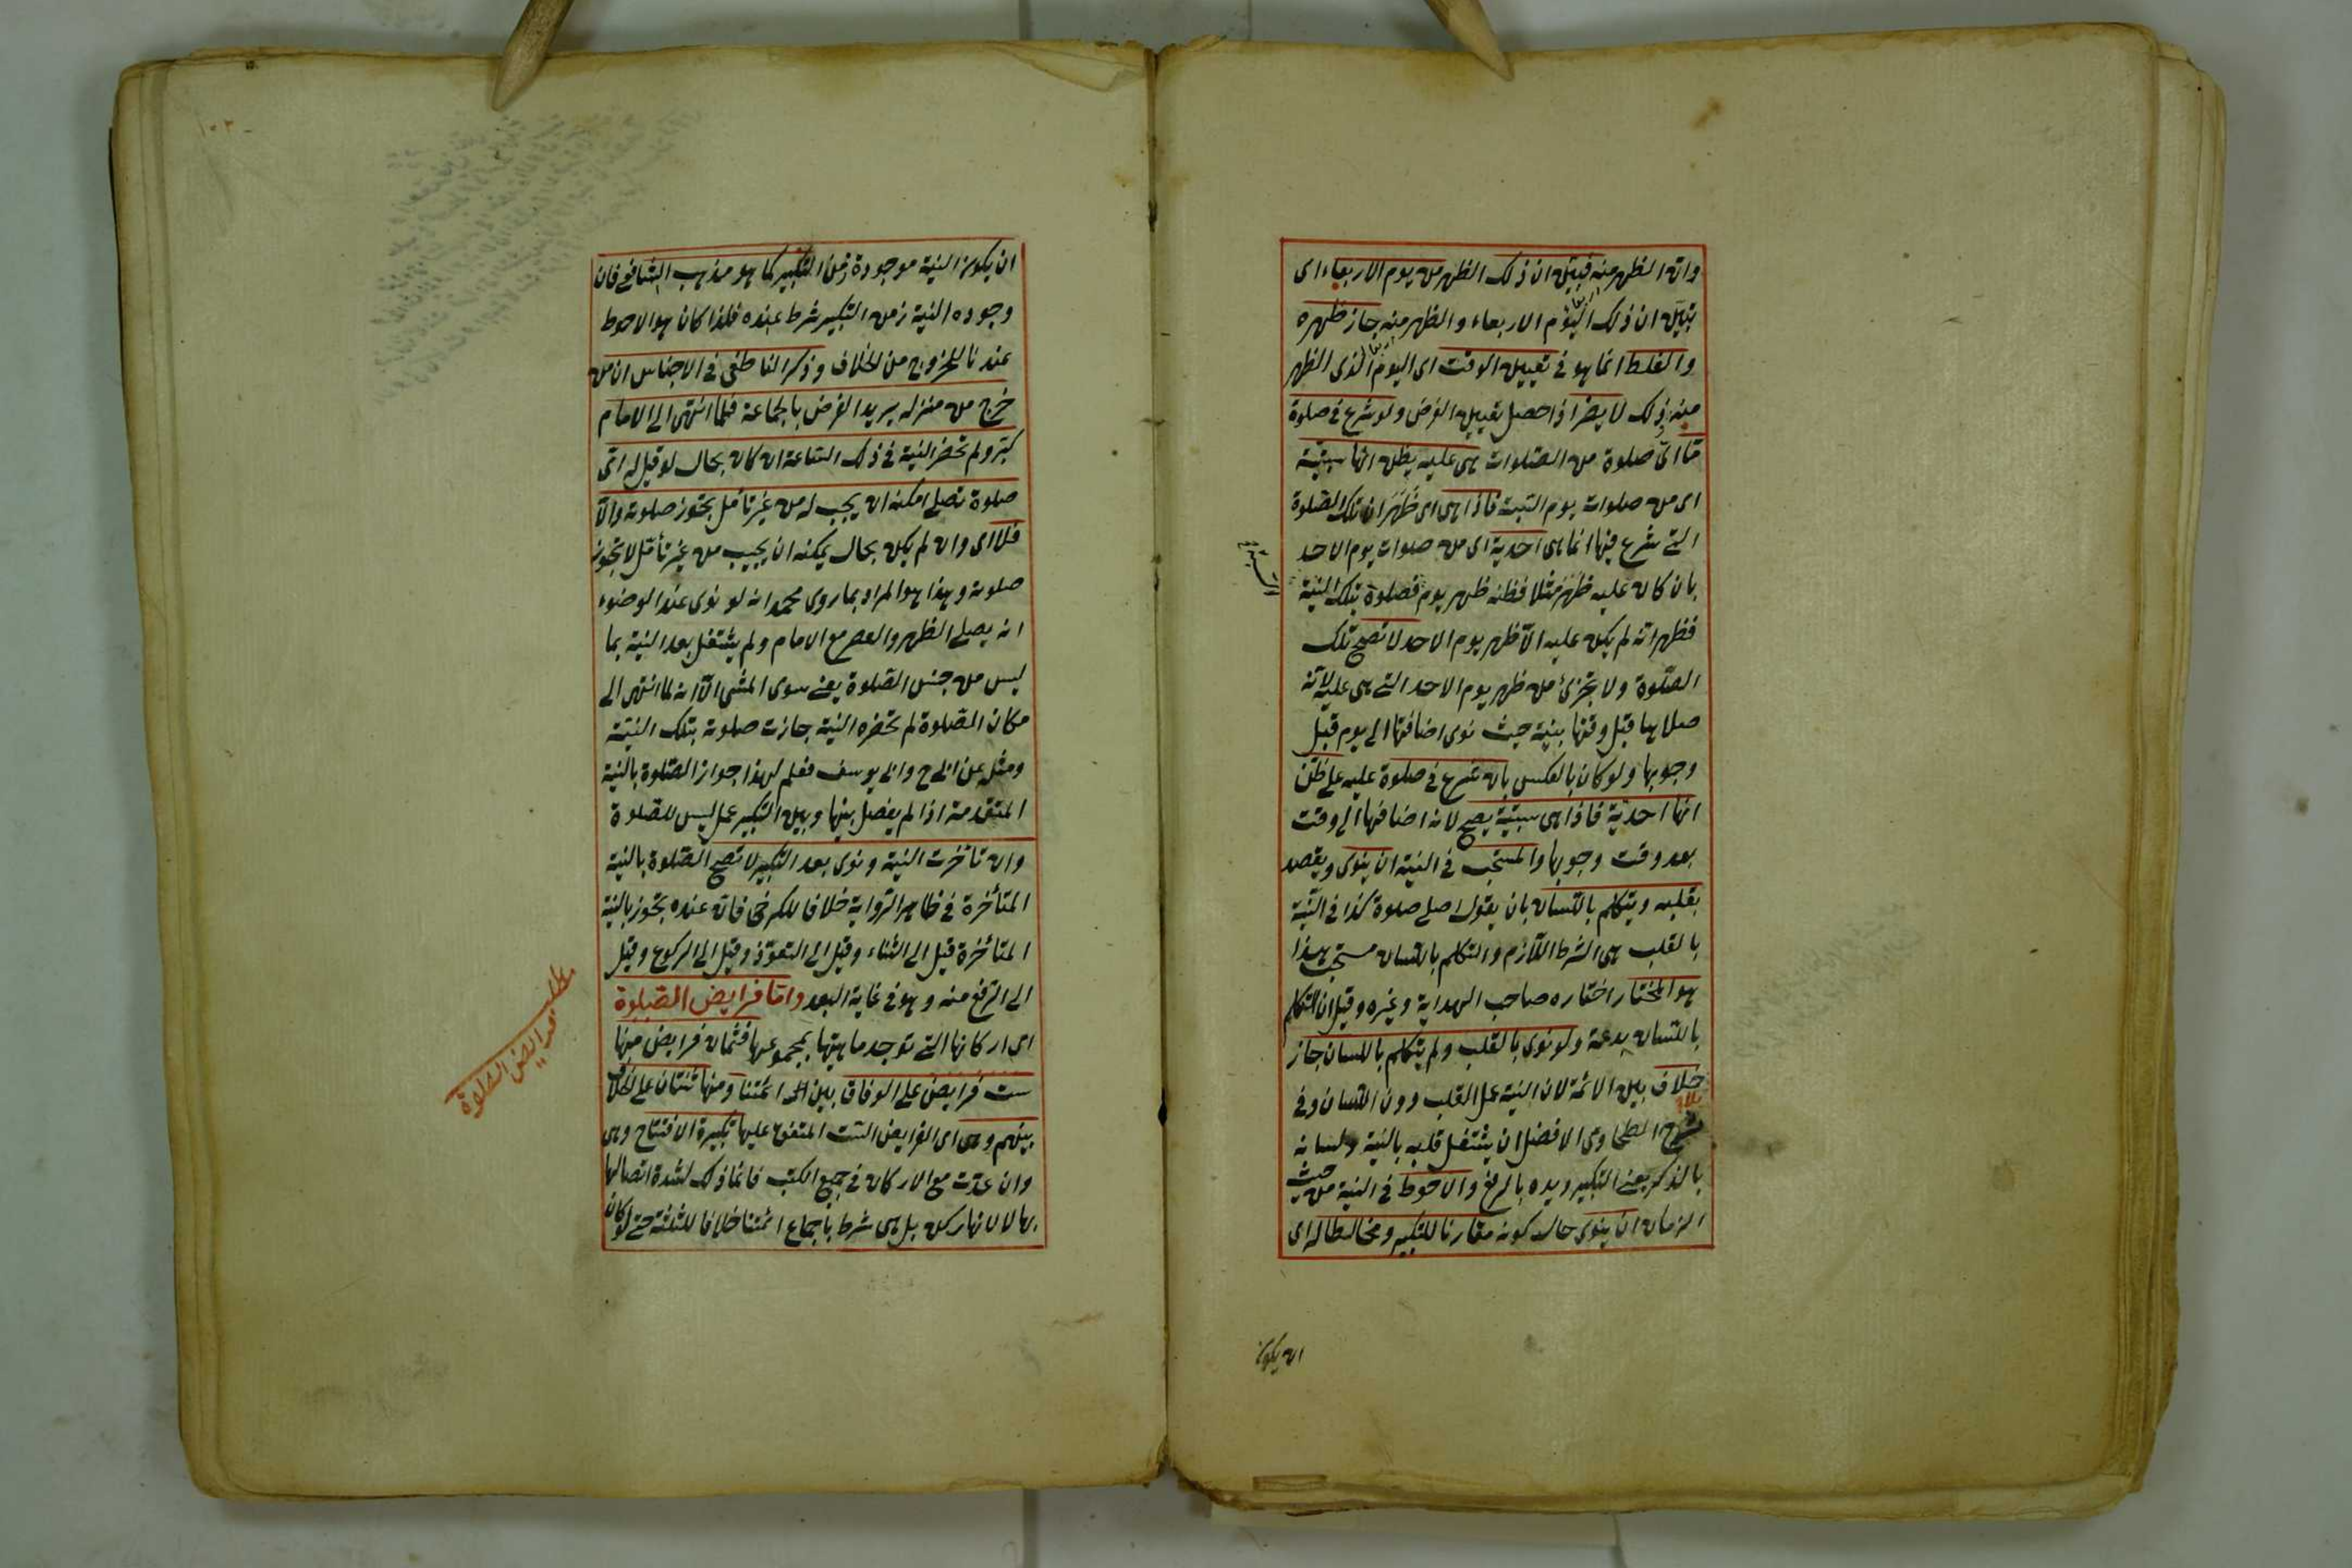 وان الظهر منه فتبين ان ذلك الظهر من يوم الاربعاء اى
تبين ان ذلك اليوم الاربعاء والظهر منه جاز ظهره
والغلط انما هو فى تعيين الوقت اى اليوم الذى الظهر
منه وذلك لا يضر اذا حصل تعيين الفرض ولو شرع فى صلوة
ما اى صلوة من الصلوات هى عليه يظن انها سبتية
اى من صلوات يوم السبت فاذا هى اى ظهر ان تلك الصلوة
التى شرع فيها انما هى احدية اى من صلوات يوم الاحد
بان كان عليه ظهر مثلا فظنه ظهر يوم فصلوة بتلك النية
السبت
فظهر انه لم يكن عليه الا ظهر يوم الاحد لا تصح تلك
الصلوة ولا تجزئ من ظهر يوم الاحد التى هى عليه لانه
صلاها قبل وقتها بنية حيث نوى اضافتها الى يوم قبل
وجوبها ولو كان بالعكس بان شرع فى صلوة عليه على ظن
انها احدية فاذا هى سبتية يصح لانه اضافها الى وقت
بعد وقت وجوبها والمستحب فى النية ان ينوى ويقصد
بقلبه ويتكلم باللسان بان يقول اصلى صلوة كذا فى النية
بالقلب هى الشرط اللازم والتكلم باللسان مستحب هذا
هو المختار اختاره صاحب الهداية وغيره وقيل ان التكلم
باللسان بدعة ولو نوى بالقلب ولم يتكلم باللسان جاز
خلاف بين الائمة لان النية عمل القلب دون اللسان وفى
بلا
شرح الطحاوى الافضل ان يشتغل قلبه بالنية ولسانه
بالذكر يعنى التكبير ويده بالرفع والاحوط فى النية من حيث
الزمان ان ينوى حال كونه مقارنا للتكبير ومخالطا له اى
ان يكون
ان يكون النية موجودة زمن التكبير كما هو مذهب الشافعى فان
وجوده النية زمن التكبير شرط عنده فلذا كان هو الاحوط
عندنا للخروج من الخلاف وذكر الناطفى فى الاجناس ان من
خرج من منزله يريد الفرض بالجماعة فلما انتهى الى الامام
كبر ولم تحضر النية فى ذلك الساعة ان كان بحال لو قيل له اى
صلوة تصلى امكنه ان يجيب له من غير تأمل تجوز صلوته والا
فلا اى وان لم يكن بحال يمكنه ان يجيب من غير تأمل لا تجوز
صلوته وهذا هو المراد بما روى محمد انه لو نوى عند الوضوء
انه يصلى الظهر والعصر مع الامام ولم يشتغل بعد النية بما
ليس من جنس الصلوة يعنى سوى المشى الا انه لما انتهى الى
مكان الصلوة لم تحضره النية جازت صلوته بتلك النية
ومثله عن ابى ح وابى يوسف فعلم لهذا جواز الصلوة بالنية
المتقدمة اذا لم يفصل بينها وبين التكبير عمل ليس للصلوة
وان تأخرت النية ونوى بعد التكبير لا تصح الصلوة بالنية
المتأخرة فى ظاهر الرواية خلافا للكرخى فانه عنده تجوز بالنية
المتأخرة قيل الى الثناء وقيل الى التعوذ وقيل الى الركوع وقيل
الى الرفع منه وهو فى غاية البعد واما فرايض الصلوة
اى اركانها التى توجد ماهيتها بمجموعها فثمان فرايض منها
مطلب فرايض الصلوة
ست فرايض على الوفاق بين ائمتنا ومنها ثنتان على الخلاف
بينهم وهى اى الفرايض الست المتفق عليها تكبيرة الافتتاح وهى
وان عدت مع الاركان فى جميع الكتب فانما ذلك لشدة اتصالها
بها لا لانها ركن بل هى شرط باجماع ائمتنا خلافا للثلثة حتى لو كان